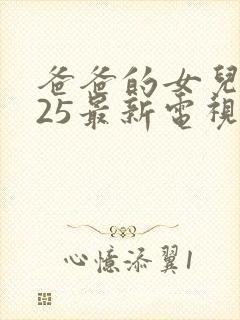 爸爸的女兒
25最新電視
心憶添翼1